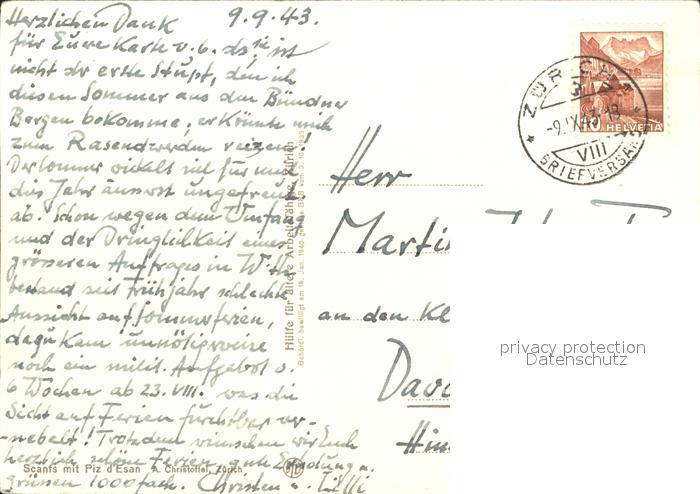 Herzlichen Dank 9.9.43.
für Eure Karte v. 6. ds, sie ist
nicht dr erste Stupf, den ich
diesen Sommer aus den Bündner
Bergen bekomme, er könnte mich
zum Rasendwerden reizen!
Der Sommer wickelt sich für mich
des Jahr äusserst ungefreut
ab. Schon wegen dem Umfang
und der Dringlichkeit eines
grösseren Auftrages in W'thur
bestand seit Frühjahr schlechte
Aussicht auf Sommerferien,
dazu kam unnötigerweise
noch ein milit. Aufgebot v.
6 Wochen ab 23. VIII. was die
Sicht auf Ferien furchtbar ver-
-nebelt! Trotzdem wünschen wir Euch
herzlich schöne Ferien, gute Erholung u.
grüssen 1000fach. Christen u. Lilli
Scanfs mit Piz d'Esan A. Christoffel, Zürich
Hülfe für ältere Arbeitsfähige, Zürich
Behördl. bewilligt am 18. Jan. 1940 gemäss BRB vom
ZÜRICH
-9.IX.43.
VIII
BRIEFVERSAND
10 HELVETIA
Herr
Martin
an den Kl
Davo
privacy protection
Datenschutz